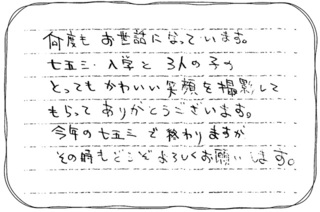 何度もお世話になっています。
七五三・入学と3人の子の
とってもかわいい笑顔を撮影して
もらってありがとうございます。
今年の七五三で終わりますが
その時もどうぞよろしくお願いします。